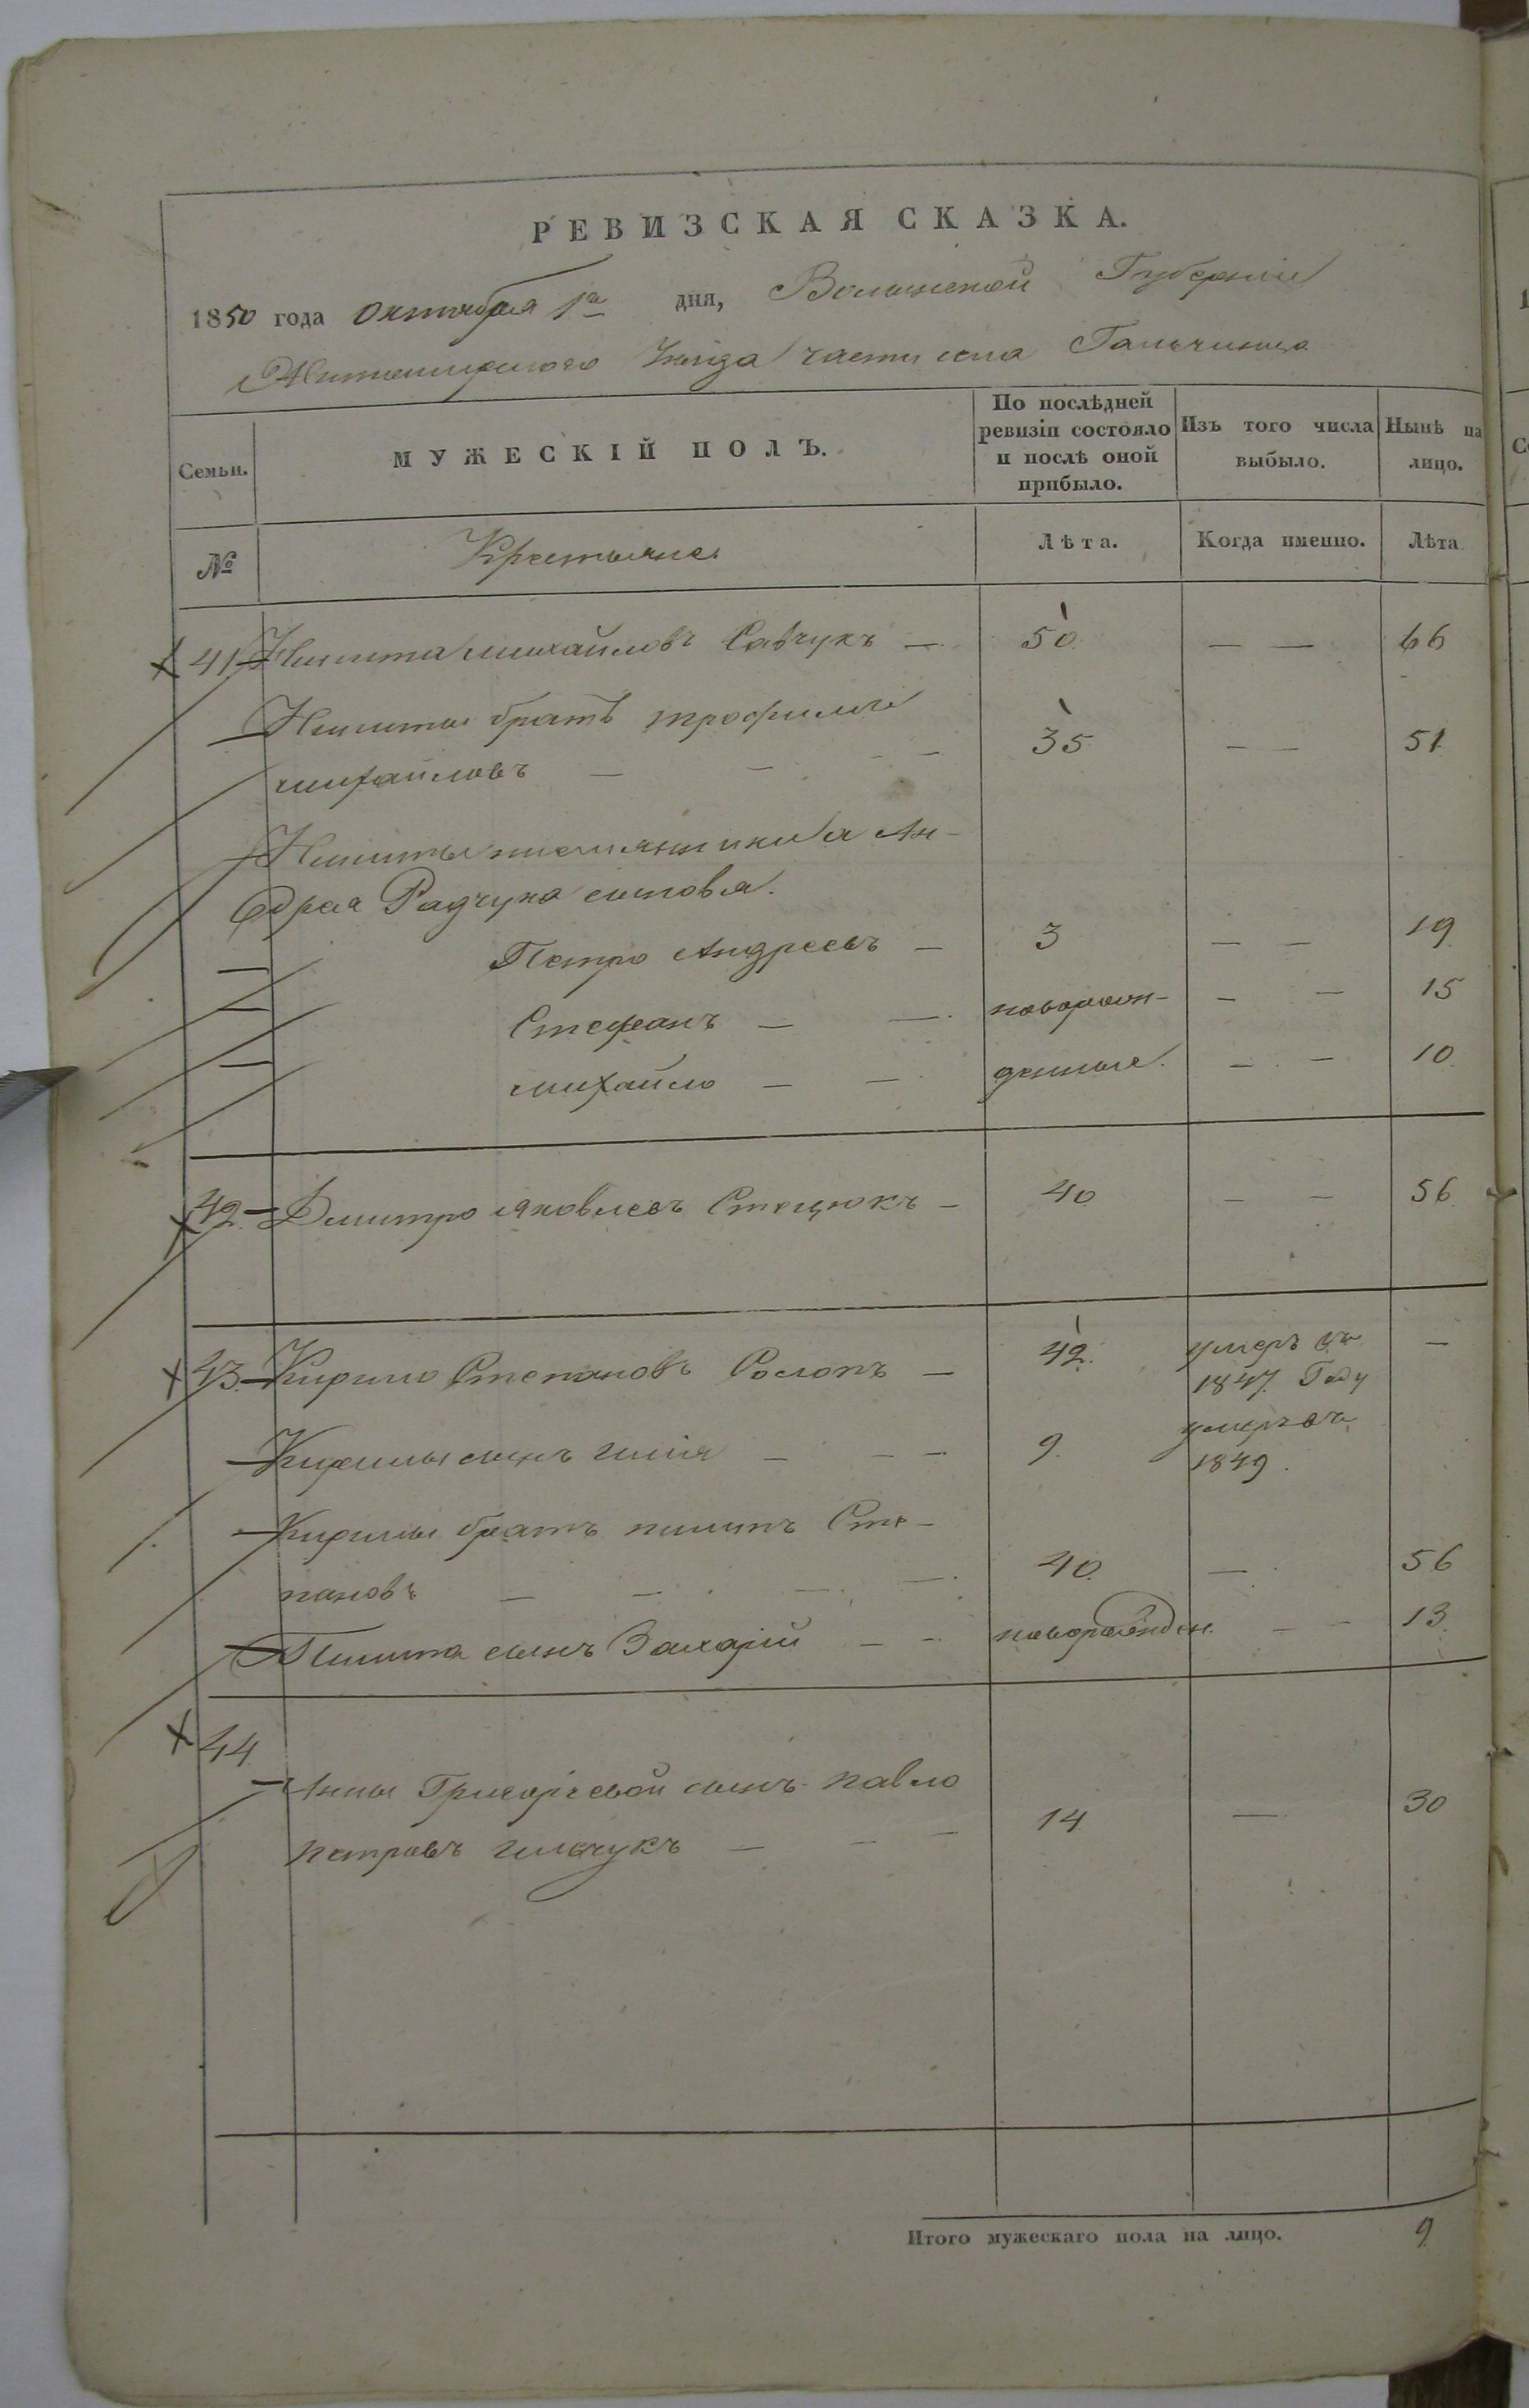 РЕВИЗСКАЯ СКАЗКА.
1850 года Октября 1го дня, Волынской Губернии
Житомирского Уезда части села Гальчинца
Семьи.
МУЖЕСКІЙ ПОЛЪ.
По послѣдней ревизіи состояло и послѣ оной прибыло.
Изъ того числа выбыло.
Нынѣ на лицо.
№
Крестьяне
Лѣта.
Когда именно.
Лѣта
41 Никита михайловъ Савчукъ — 50 — — 66
Никиты братъ трофимъ
михайловъ — — — 35 — — 51
Никиты племянника Ан-
дрея Радчука сыновья.
Петро Андреевъ — 3 — — 19
Стефанъ — — новорож- — — 15
михайло — — денные. — — 10
42 Дмитро яковлевъ Стецюкъ — 40 — — 56
43 Кирило Степановъ Ослопъ — 42. умеръ въ —
1847 Году
Кирилы сынъ илія — — — 9. умеръ въ
1849.
Кирилы братъ пилипъ Сте-
пановъ — — — — 40. — 56
Пилипа сынъ Захарій — — новорожден. — — 13
44
Анны Григорьевой сынъ павло
петровъ ильчукъ — — — 14 — 30
Итого мужескаго пола на лицо. 9